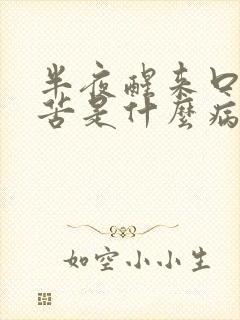 半夜醒来口
苦是什麼病
如空小小生